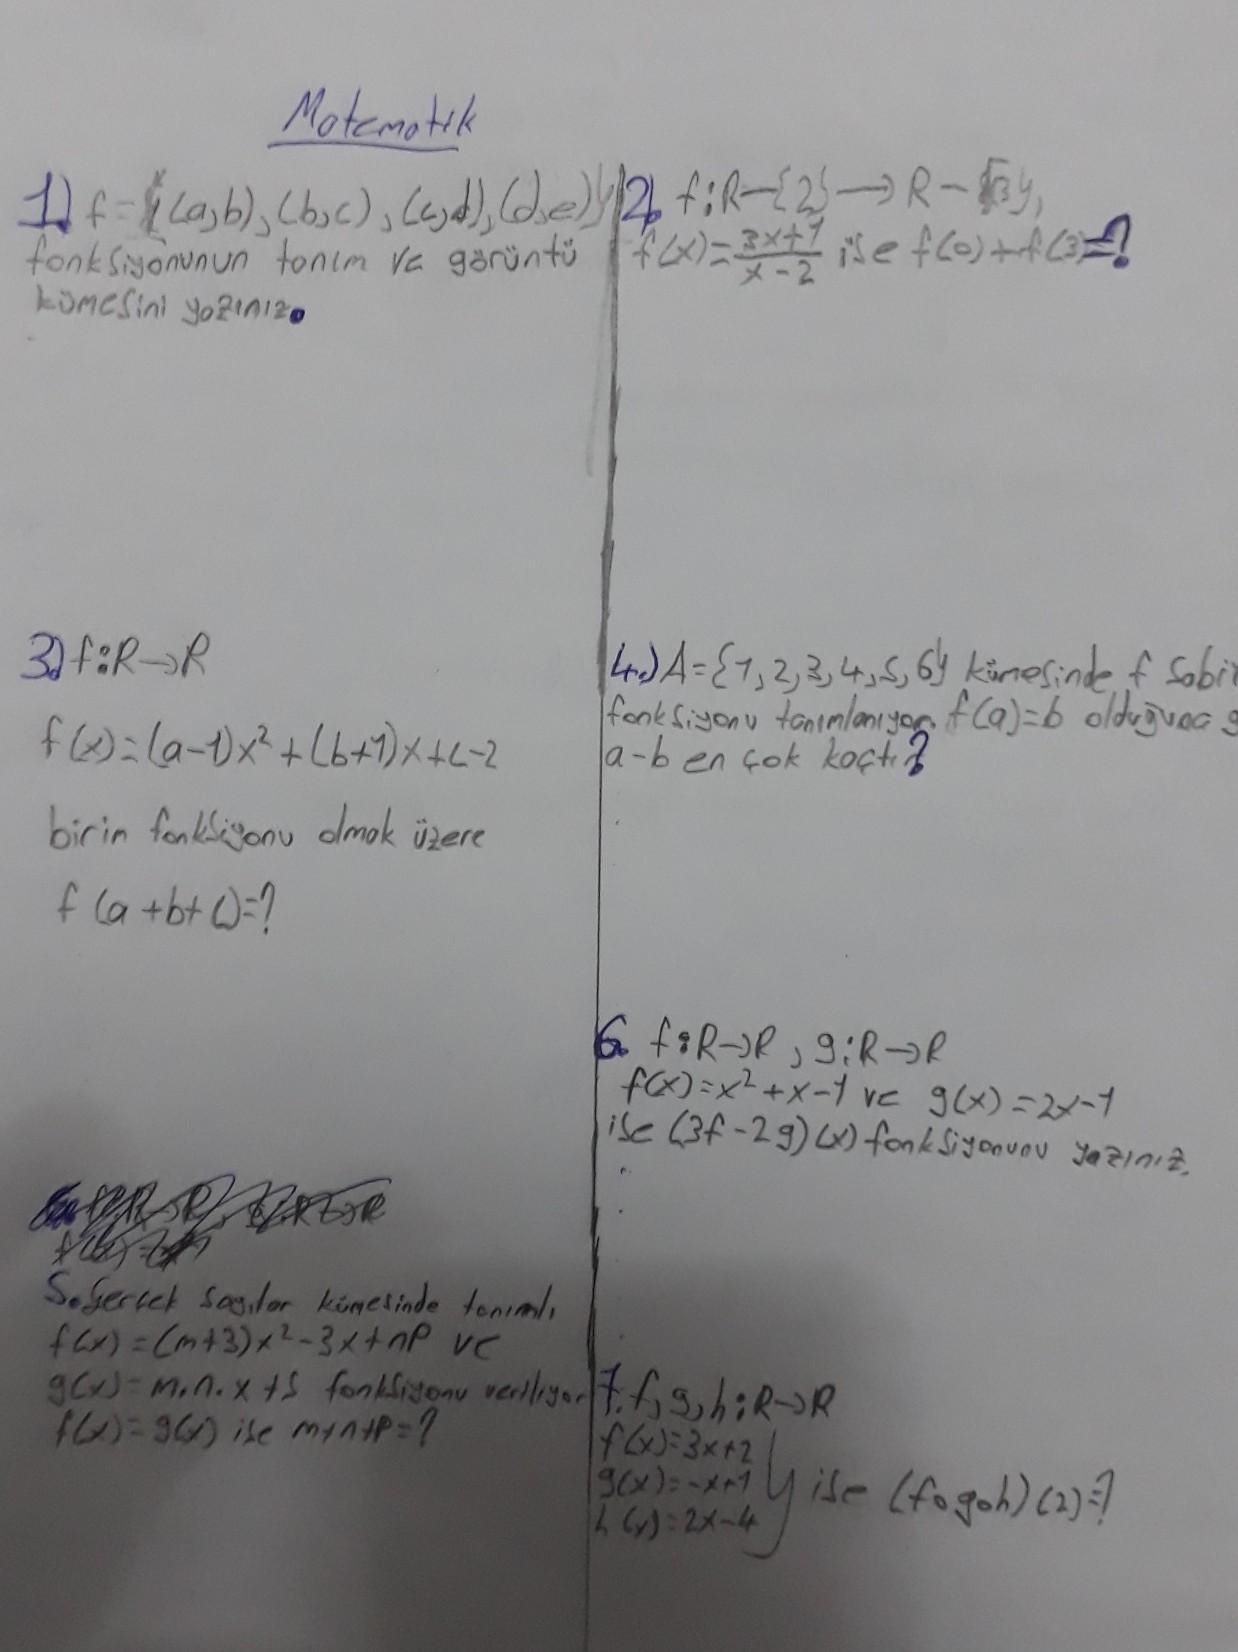 Matematik
1) f={(a,b),(b,c),(c,d),(d,e)}
fonksiyonunun tanım ve görüntü
kümesini yazınız.
2. f:R-{2}→R-{3},
f(x)=3x+1/x-2 ise f(0)+f(3)=?
3) f:R→R
f(x)=(a-1)x²+(b+1)x+c-2
birim fonksiyonu olmak üzere
f(a+b+c)=?
4.) A={1,2,3,4,5,6} kümesinde f sabi
fonksiyonu tanımlanıyor. f(a)=b olduğuna g
a-b en çok kaçtır?
5. Gerçek sayılar kümesinde tanımlı
f(x)=(m+3)x²-3x+np ve
g(x)=m.n.x+5 fonksiyonu veriliyor
f(x)=g(x) ise m+n+p=?
6. f:R→R, g:R→R
f(x)=x²+x-1 ve g(x)=2x-1
ise (3f-2g)(x) fonksiyonunu yazınız.
7. f,g,h:R→R
f(x)=3x+2
g(x)=-x+1 } ise (fogoh)(2)=?
h(x)=2x-4